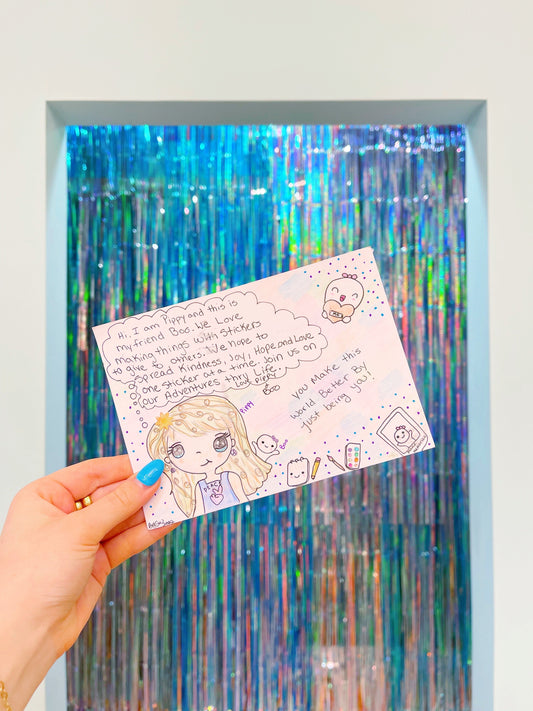 Hi, I am Pippy and this is
my friend Boo. We Love
making things with stickers
to give to others. We hope to
spread Kindness, Joy, Hope and Love
one sticker at a time. Join us on
our Adventures thru Life.
Luv, Pippy
&
Boo
You Make this
world Better By
just being ya!
Pippy
Boo